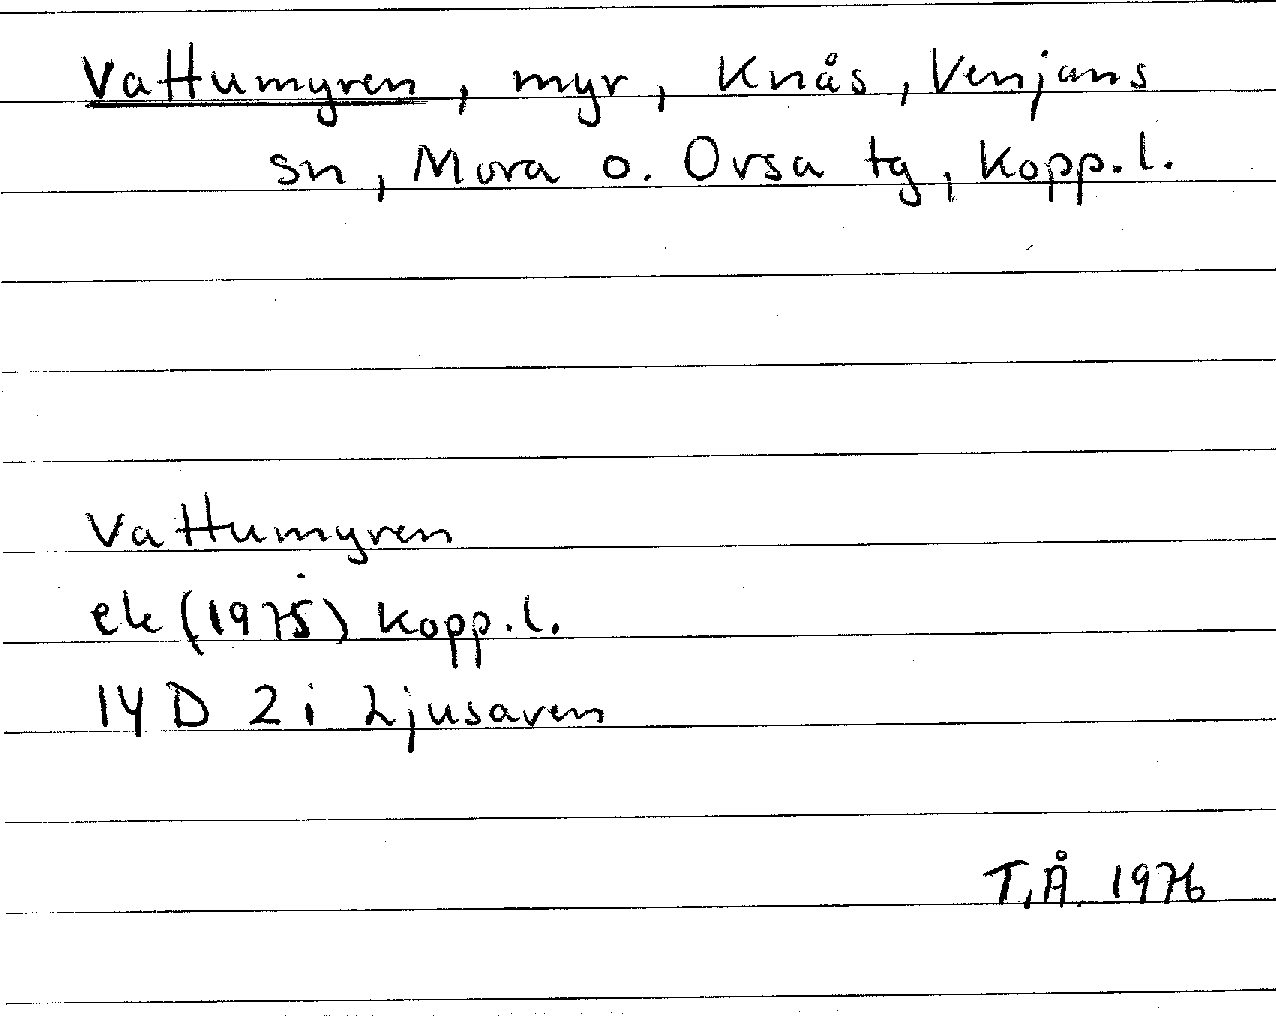 Vattumyren, myr, Knås, Venjans
sn, Mora o. Orsa tg, Kopp. l.
Vattumyren
ek (1975) Kopp. l.
14 D 2 i Ljusaren
T.Å. 1976